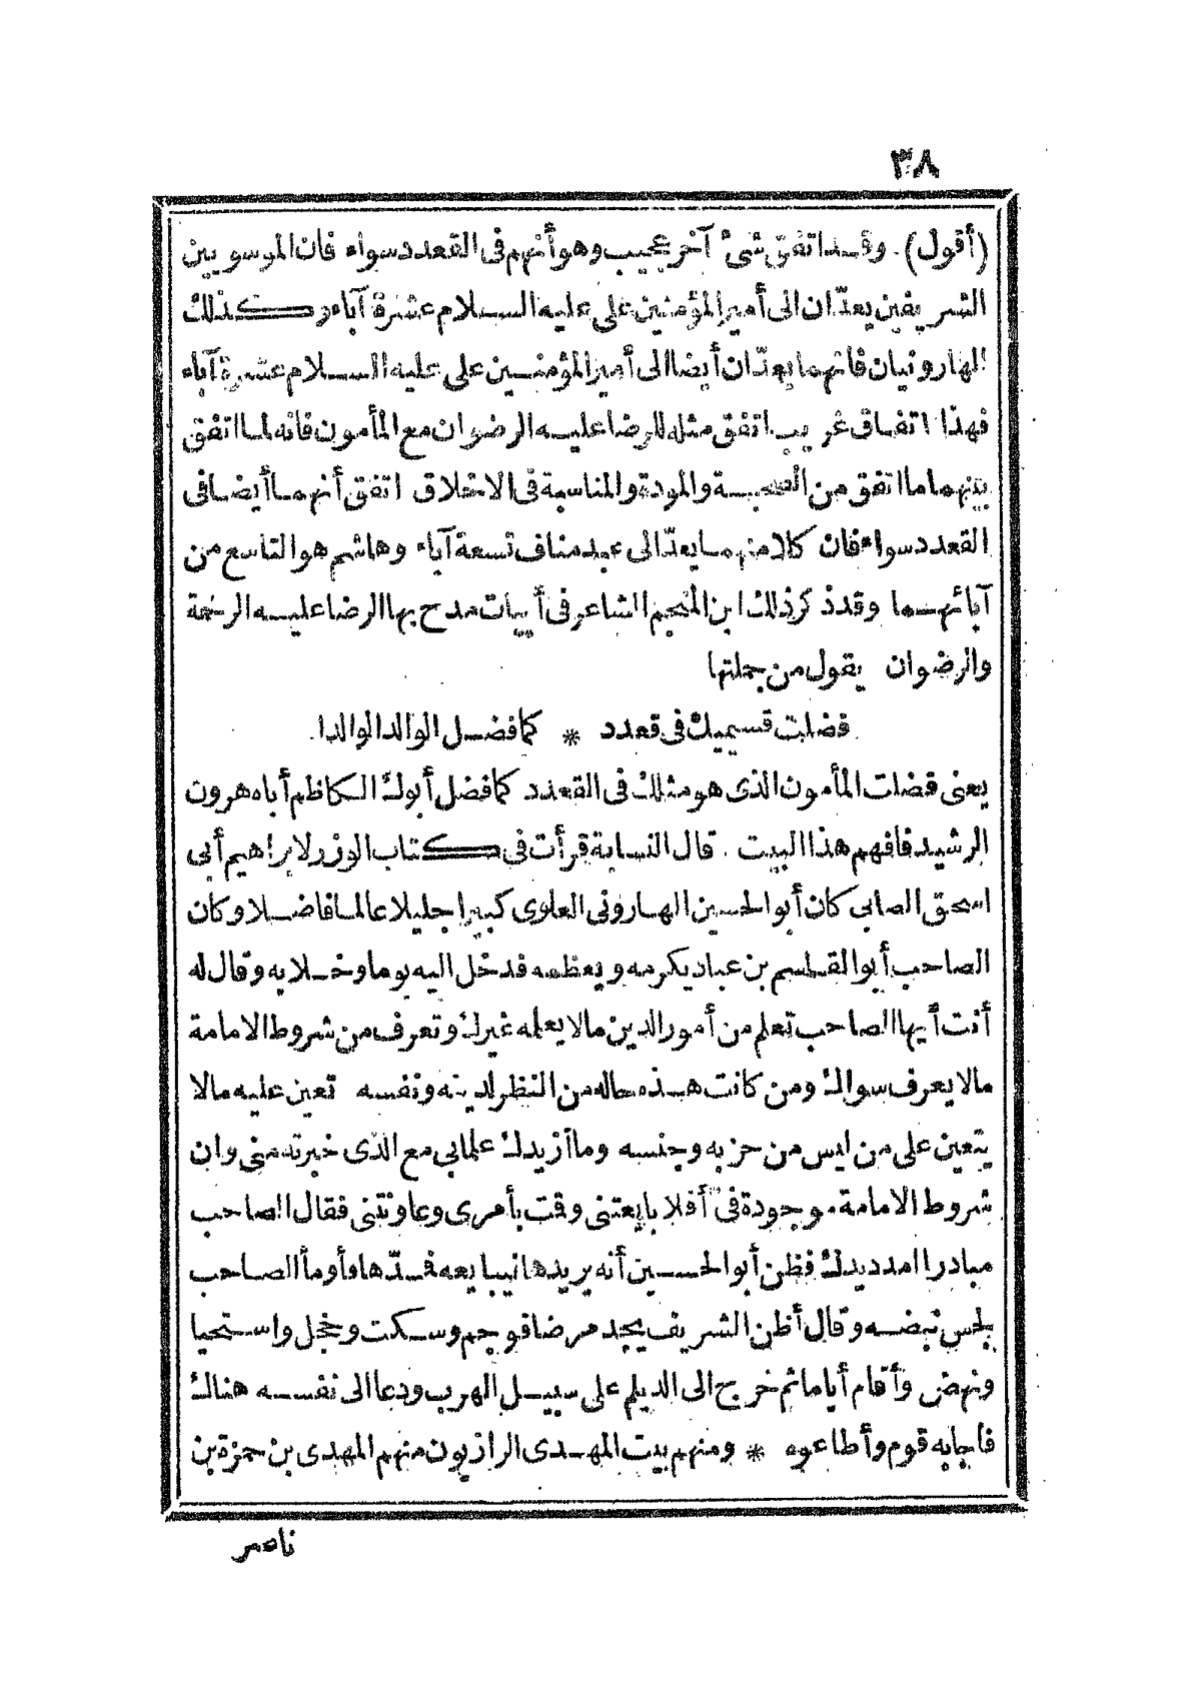 ٣٨
(أقول). وقد اتفق شئ آخر عجيب وهو أنهم فى القعدد سواء فان الموسويين
الشريفين يعدّان الى أمير المؤمنين على عليه السلام عشرة آباء وكذلك
الهارونيان فانهما يعدّان أيضا الى أمير المؤمنين على عليه السلام عشرة آباء
فهذا اتفاق غريب اتفق مثله للرضا عليه الرضوان مع المأمون فانه لما اتفق
بينهما ما اتفق من الصحبة والمودة والمناسبة فى الاخلاق اتفق أنهما أيضا فى
القعدد سواء فان كلا منهما يعدّ الى عبد مناف تسعة آباء وهاشم هو التاسع من
آبائهما وقد ذكر ذلك ابن المنجم الشاعر فى أبيات مدح بها الرضا عليه الرحمة
والرضوان يقول من جملتها
فضلت قسيميك فى قعدد * كما فضل الوالد الوالدا.
يعنى فضلت المأمون الذى هو مثلك فى القعدد كما فضل أبوك الكاظم أباه هرون
الرشيد فافهم هذا البيت. قال النسابة قرأت فى كتاب الوزر لابراهيم أبى
اسحق الصابى كان أبو الحسين الهارونى العلوى كبيرا جليلا عالما فاضلا وكان
الصاحب أبو القاسم بن عباد يكرمه ويعظمه فدخل اليه يوما وخلا به وقال له
أنت أيها الصاحب تعلم من أمور الدين مالا يعلمه غيرك وتعرف من شروط الامامة
مالا يعرف سواك ومن كانت هذه حاله من النظر لدينه ونفسه تعين عليه مالا
يتعين على من ليس من حزبه وجنسه وما أزيدك علما بى مع الذى خبرته منى وان
شروط الامامة موجودة فىّ أفلا بايعتنى وقت بأمرى وعاونتنى فقال الصاحب
مبادرا امدد يدك فظن أبو الحسين أنه يريدها ليبايعه فمدّها وأومأ الصاحب
لجس نبضه وقال أظن الشريف يجد مرضا فوجم وسكت وخجل واستحيا
ونهض وأقام أياما ثم خرج الى الديلم على سبيل الهرب ودعا الى نفسه هناك
فأجابه قوم وأطاعوه * ومنهم بيت المهدى الرازيون منهم المهدى بن حمزة بن
ناصر